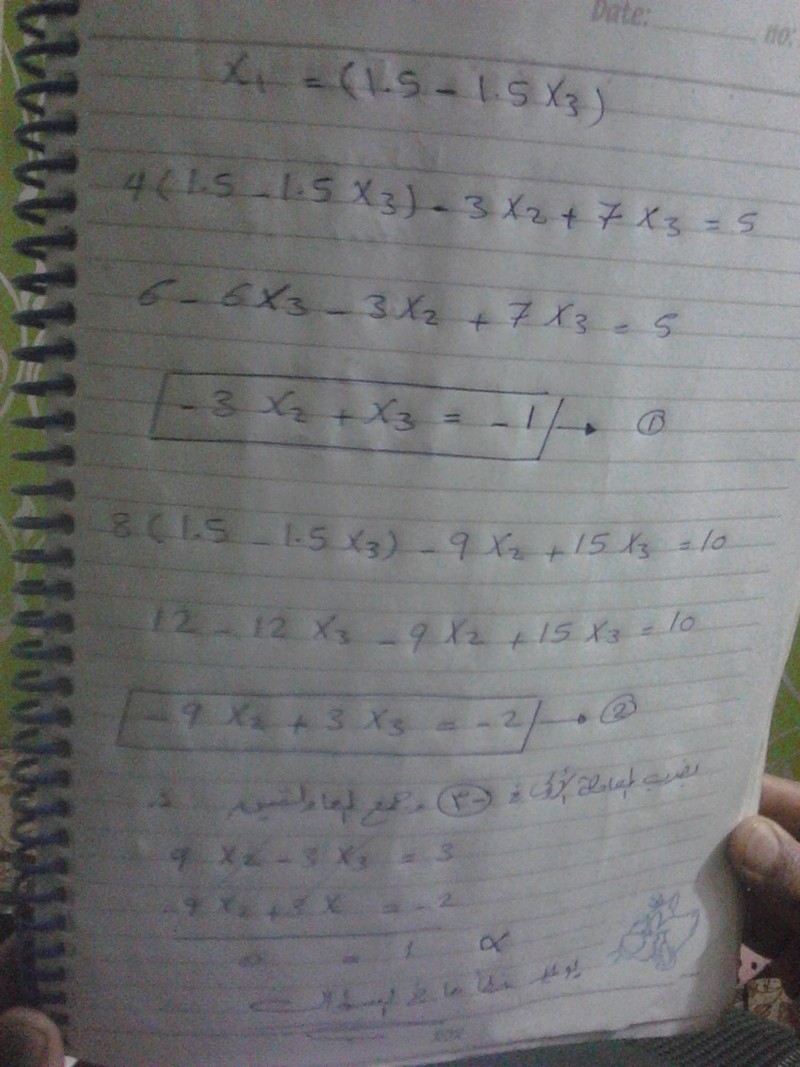 Date:
no:
X₁ = (1.5 - 1.5 X₃)
4(1.5 - 1.5 X₃) - 3 X₂ + 7 X₃ = 5
6 - 6X₃ - 3X₂ + 7 X₃ = 5
- 3 X₂ + X₃ = - 1 → ①
8 (1.5 - 1.5 X₃) - 9 X₂ + 15 X₃ = 10
12 - 12 X₃ - 9 X₂ + 15 X₃ = 10
- 9 X₂ + 3 X₃ = - 2 → ②
بضرب المعادلة الأولى في (-٣) وجمع المعادلتين
9 X₂ - 3 X₃ = 3
-9 X₂ + 3 X = - 2
0 = 1